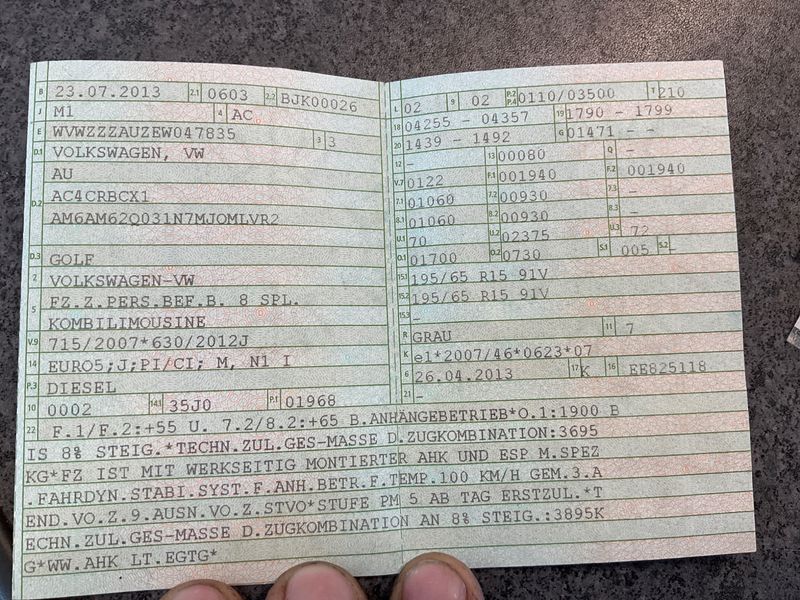 B 23.07.2013 2.1 0603 2.2 BJK00026
J M1 4 AC
E WVWZZZAUZEW047835 3 3
D.1 VOLKSWAGEN, VW
AU
D.2 AC4CRBCX1
AM6AM62Q031N7MJOMLVR2
D.3 GOLF
2 VOLKSWAGEN-VW
5 FZ.Z.PERS.BEF.B. 8 SPL.
KOMBILIMOUSINE
V.9 715/2007*630/2012J
14 EURO5;J;PI/CI; M, N1 I
P.3 DIESEL
10 0002 14.1 35J0 P.1 01968
L 02 9 02 P.2 P.4 0110/03500 T 210
18 04255 - 04357 19 1790 - 1799
20 1439 - 1492 G 01471 - -
12 - 13 00080 Q -
V.7 0122 F.1 001940 F.2 001940
7.1 01060 7.2 00930 7.3 -
8.1 01060 8.2 00930 8.3 -
U.1 70 U.2 02375 U.3 72
O.1 01700 O.2 0730 S.1 005 S.2 -
15.1 195/65 R15 91V
15.2 195/65 R15 91V
15.3 -
R GRAU 11 7
K e1*2007/46*0623*07
6 26.04.2013 17 K 16 EE825118
21 -
22 F.1/F.2:+55 U. 7.2/8.2:+65 B.ANHÄNGEBETRIEB*O.1:1900 B
IS 8% STEIG.*TECHN.ZUL.GES-MASSE D.ZUGKOMBINATION:3695
KG*FZ IST MIT WERKSEITIG MONTIERTER AHK UND ESP M.SPEZ
.FAHRDYN.STABI.SYST.F.ANH.BETR.F.TEMP.100 KM/H GEM.3.A
END.VO.Z.9.AUSN.VO.Z.STVO*STUFE PM 5 AB TAG ERSTZUL.*T
ECHN.ZUL.GES-MASSE D.ZUGKOMBINATION AN 8% STEIG.:3895K
G*WW.AHK LT.EGTG*